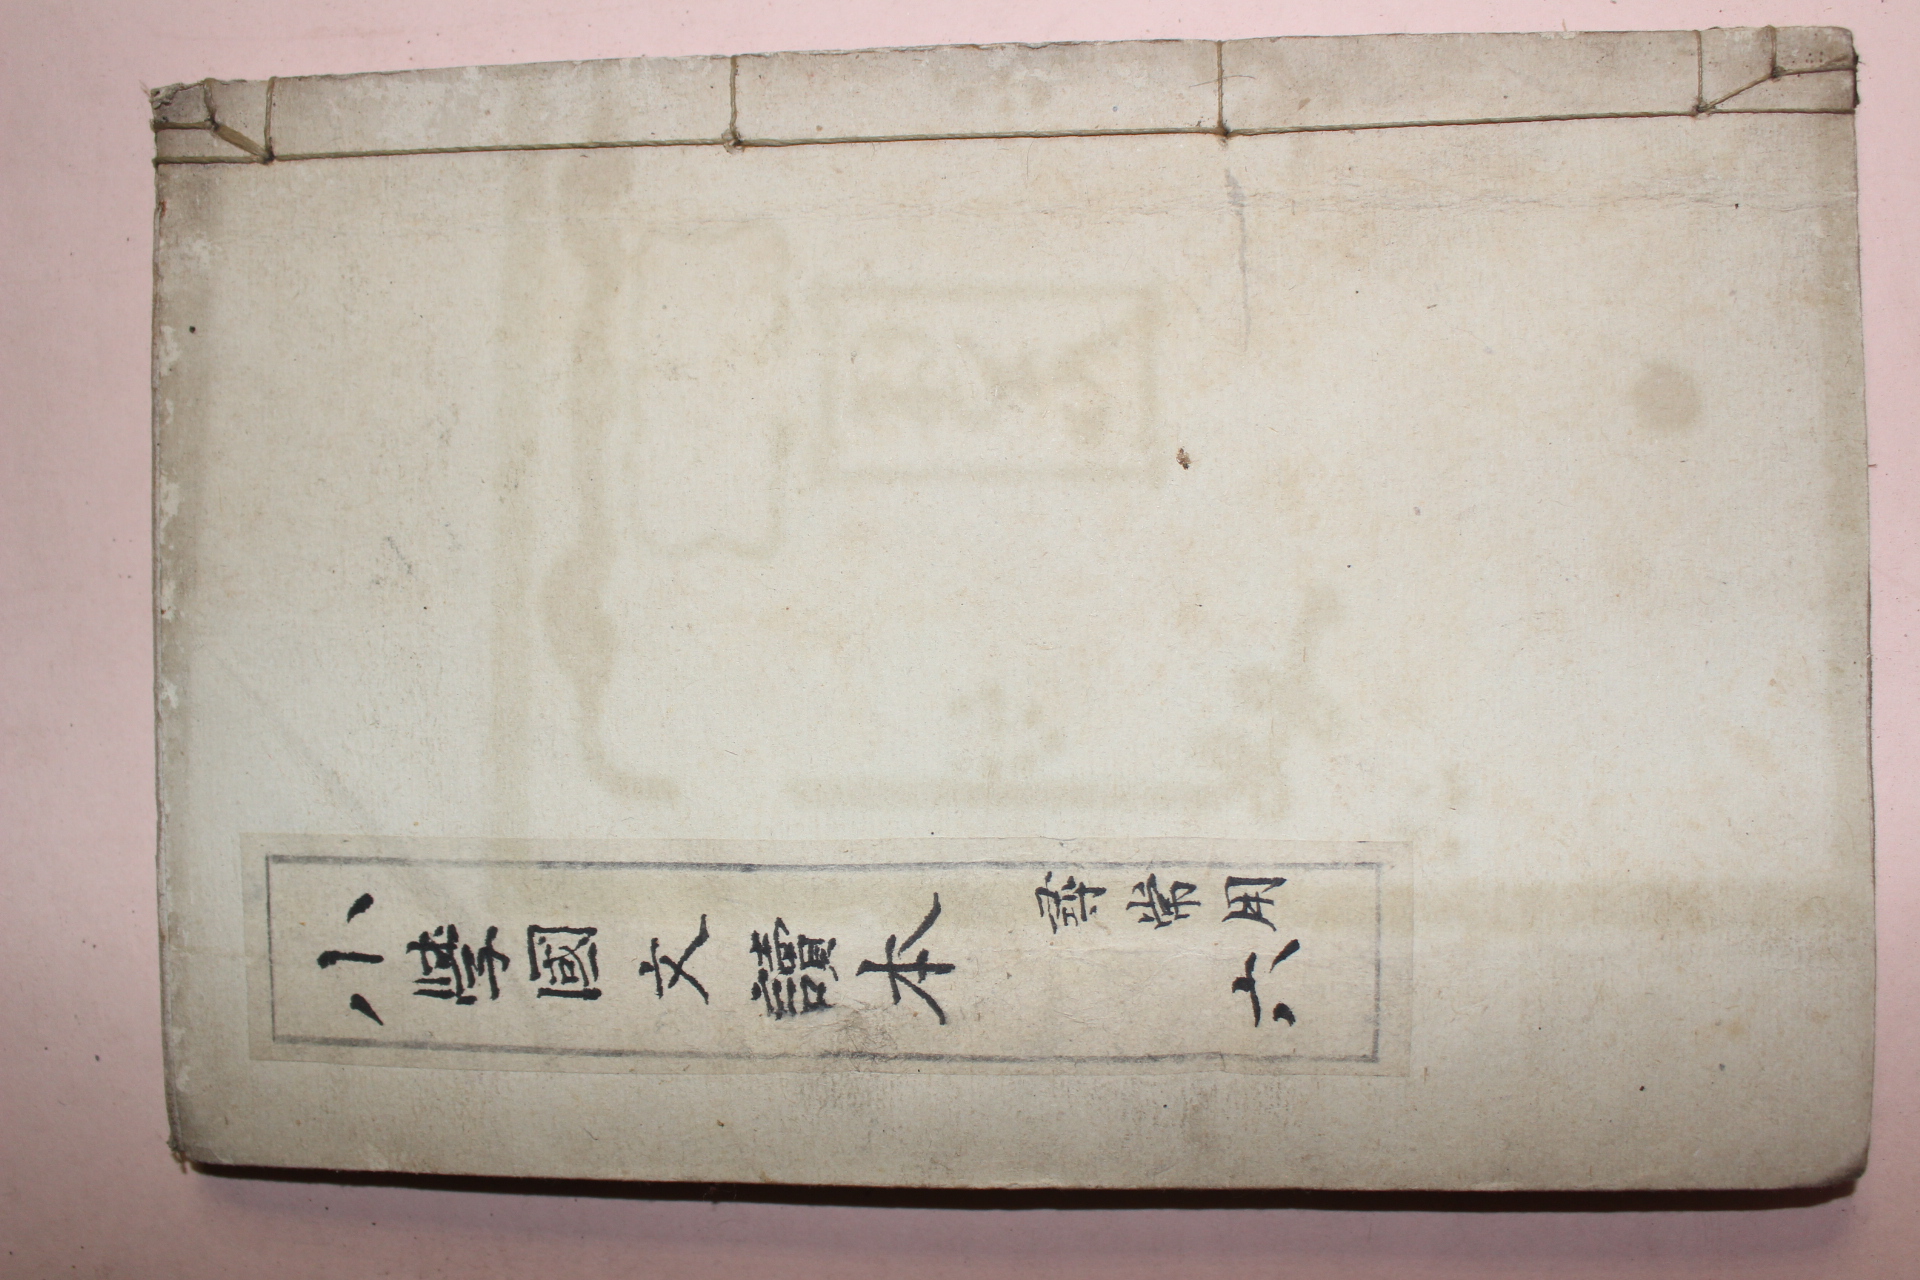 小學國文讀本
尋常用
六